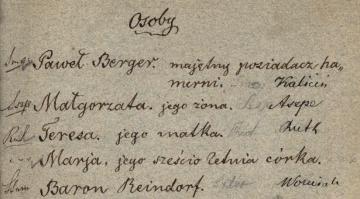 Osoby
Paweł Berger. majętny posiadacz ha-
merni. Kaliciń
Małgorzata. jego żona. Asepe
Teresa. jego matka. Ruth
Marja, jego sześcio letnia córka.
Baron Reindorf.